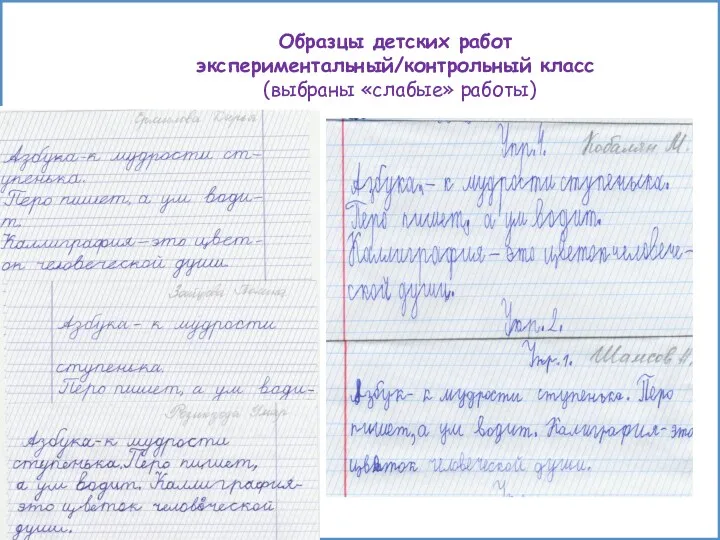 Образцы детских работ
экспериментальный/контрольный класс
(выбраны «слабые» работы)
Ермилова Дарья
Азбука-к мудрости ст-
упенька.
Перо пишет, а ум води-
т.
Каллиграфия-это цвет-
ок человеческой души.
Зайцева Полина
Азбука - к мудрости
ступенька.
Перо пишет, а ум води-
Азбука-к мудрости
ступенька.Перо пишет,
а ум водит. Каллиграфия-
это цветок человеческой
души.
Упр.1. Кобалян М.
Азбука,- к мудрости ступенька.
Перо пишет, а ум водит.
Каллиграфия - это цветок человече-
ской души.
Упр. 2.
Упр.1. Шамсов
Азбук- к мудрости ступенька. Перо
пишет, а ум водит. Калиграфия- это
цветок человеческой души.